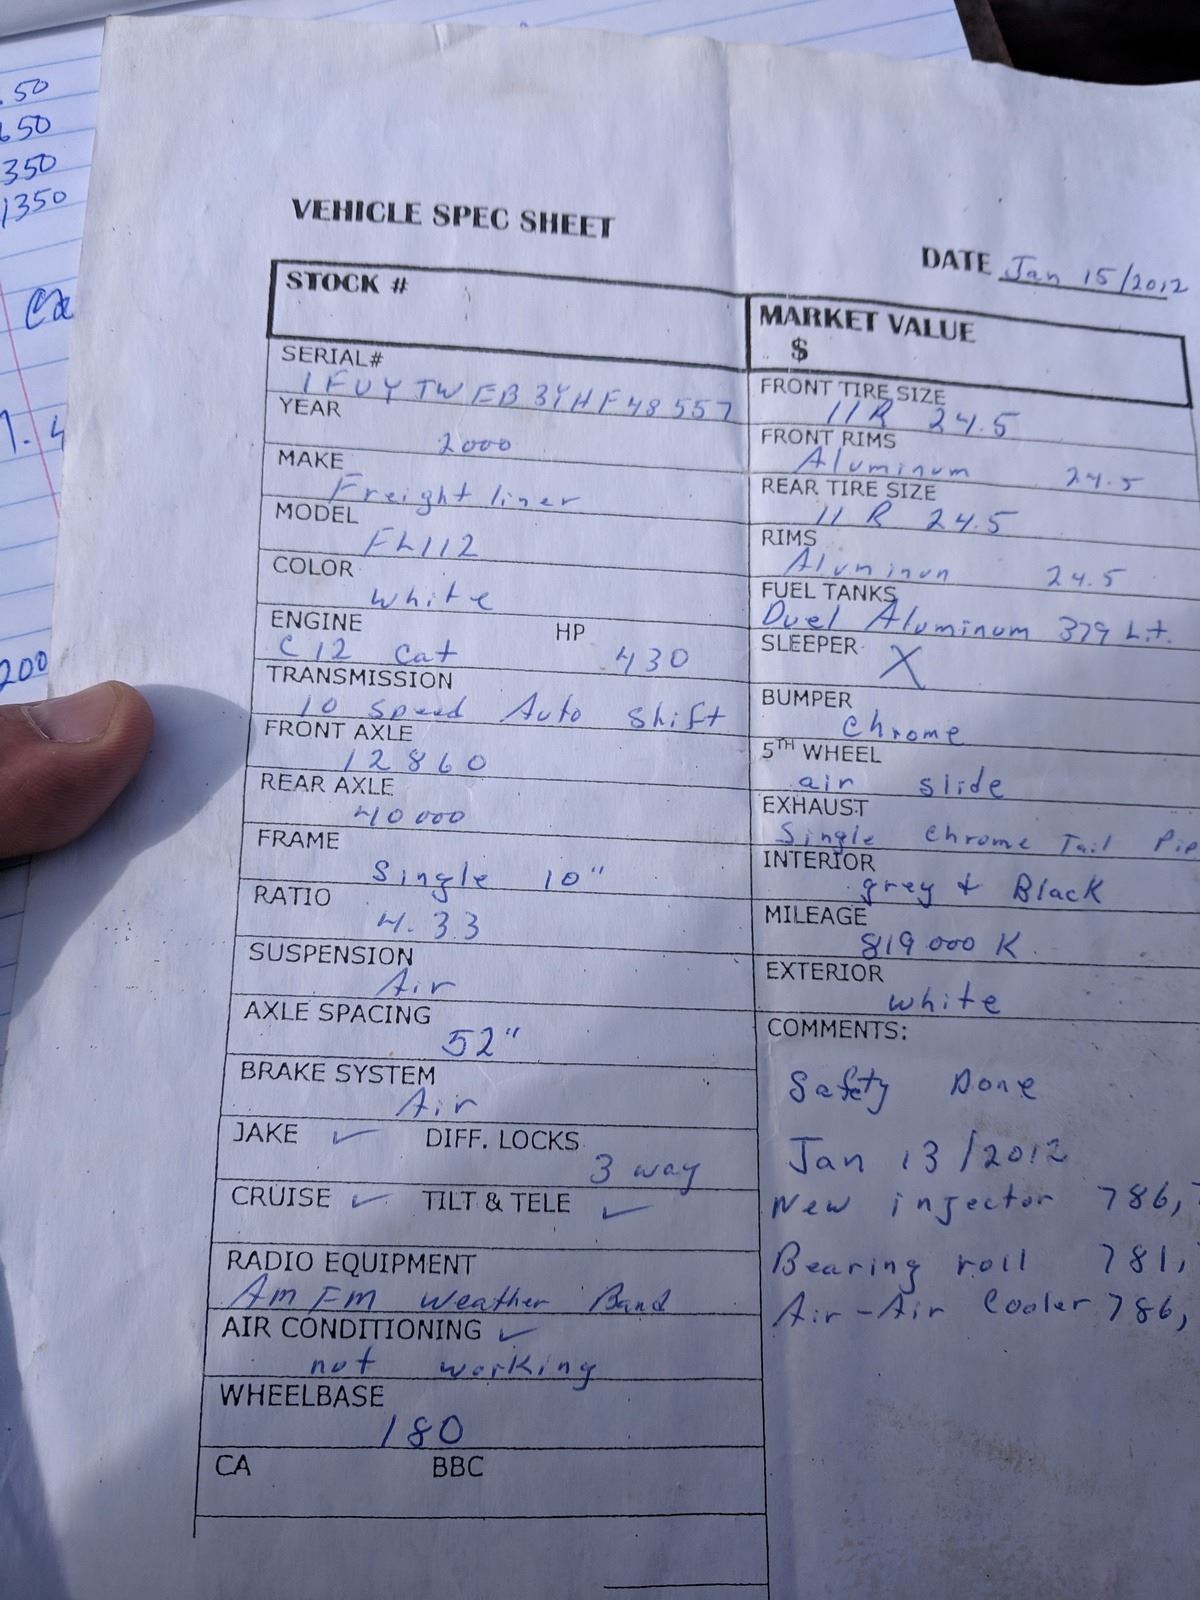 .50
650
350
1350
VEHICLE SPEC SHEET
DATE Jan 15/2012
STOCK #
MARKET VALUE
$
SERIAL#
1FUYTWEB3YHF48557
YEAR
2000
MAKE
Freight liner
MODEL
FL112
COLOR
white
ENGINE HP
C12 Cat 430
TRANSMISSION
10 Speed Auto Shift
FRONT AXLE
12860
REAR AXLE
40000
FRAME
Single 10"
RATIO
4.33
SUSPENSION
Air
AXLE SPACING
52"
BRAKE SYSTEM
Air
JAKE ✓ DIFF. LOCKS
3 way
CRUISE ✓ TILT & TELE ✓
RADIO EQUIPMENT
Am FM Weather Band
AIR CONDITIONING ✓
not working
WHEELBASE
180
CA BBC
FRONT TIRE SIZE
11R 24.5
FRONT RIMS
Aluminum 24.5
REAR TIRE SIZE
11R 24.5
RIMS
Aluminun 24.5
FUEL TANKS
Duel Aluminum 379 Lt.
SLEEPER X
BUMPER
Chrome
5TH WHEEL
air slide
EXHAUST
Single Chrome Tail Pip
INTERIOR
grey & Black
MILEAGE
819000 K
EXTERIOR
white
COMMENTS:
Safety Done
Jan 13/2012
New injector 786,
Bearing roll 781,
Air-Air Cooler 786,
200